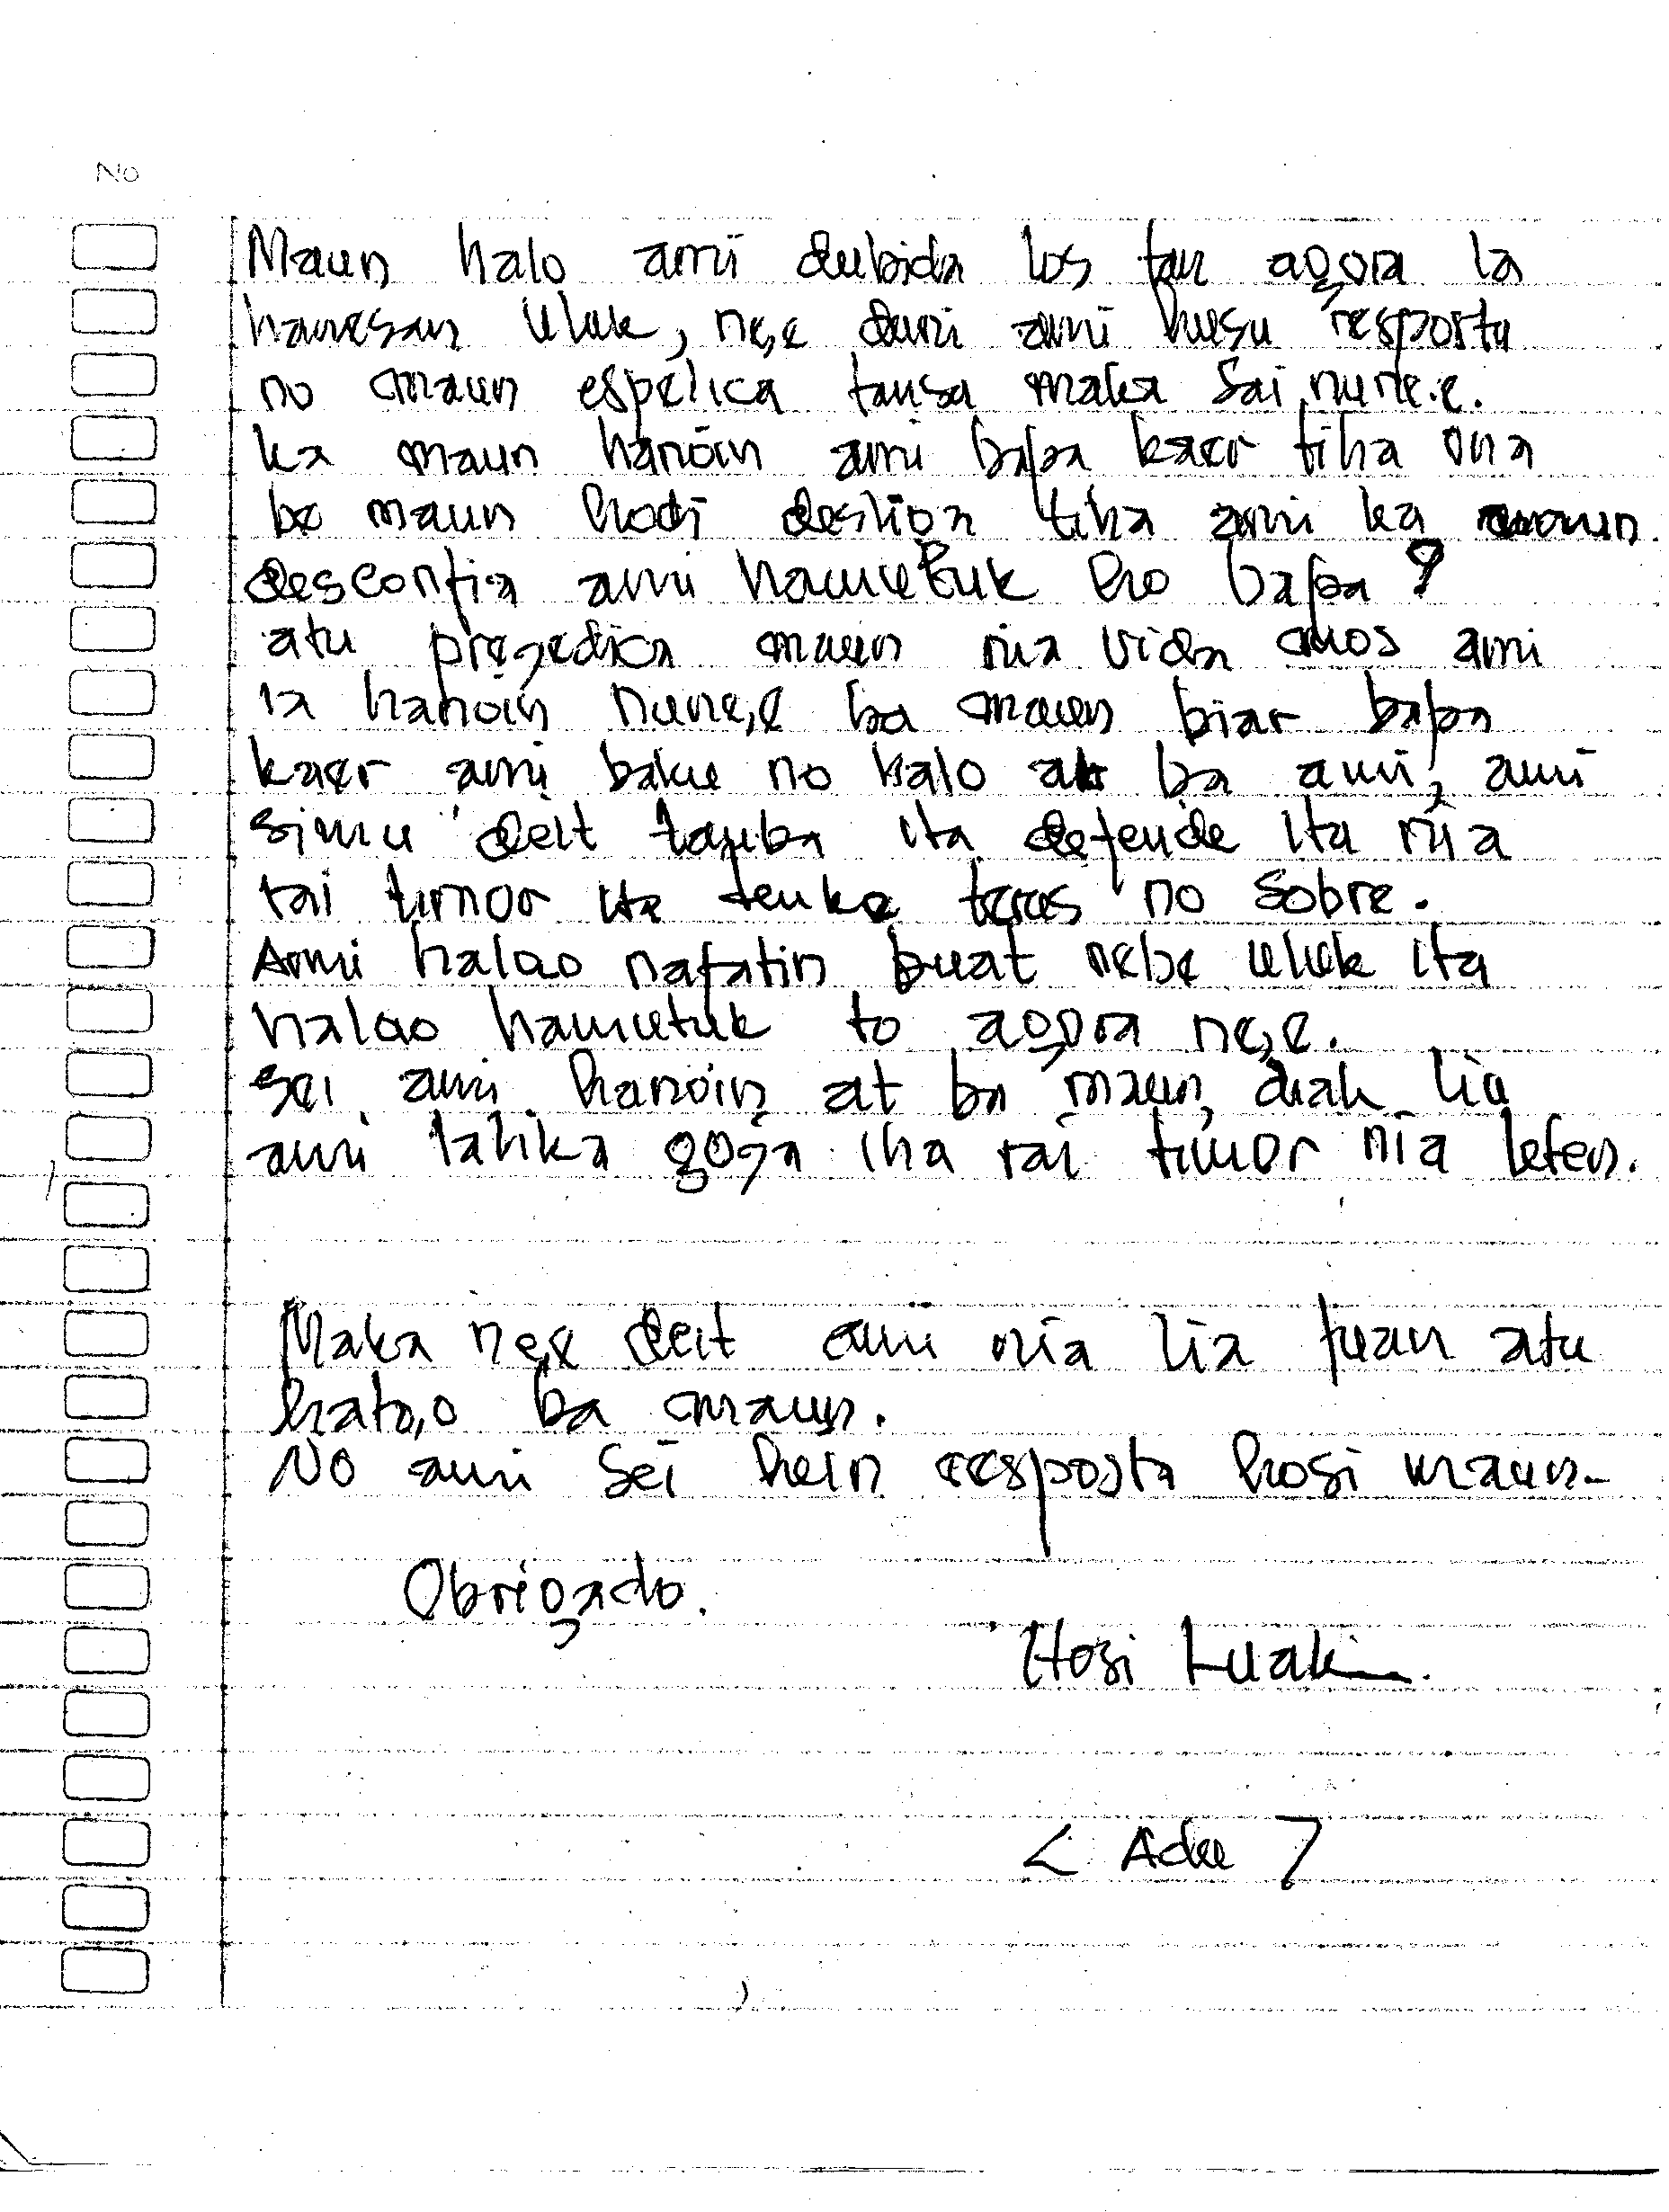 No
Maun halo ami dubida los tan agora la
hanesan uluk, ne,e duni ami husu resposta
no maun espelica tansa maka sai nune.e.
ka maun hanoin ami bapa kaer tiha ona
be maun hodi desliga tiha ami ka maun
desconfia ami hamutuk ho bapa ?
atu prejedica maun nia vida mos ami
la hanoin nune,e ba maun biar bapa
kaer ami baku no halo at ba ami, ami
simu deit tamba ita defende ita nia
rai timor ita tenke teras no sobre.
Ami halao nafatin buat nebe uluk ita
halao hamutuk to agora ne,e.
sei ami hanoin at ba maun, diak liu
ami lalika goja iha rai timor nia leten.
Maka ne,e deit ami nia lia fuan atu
hato,o ba maun.
No ami sei hein resposta hosi maun.
Obrigado.
Hosi Luak
< Adu >